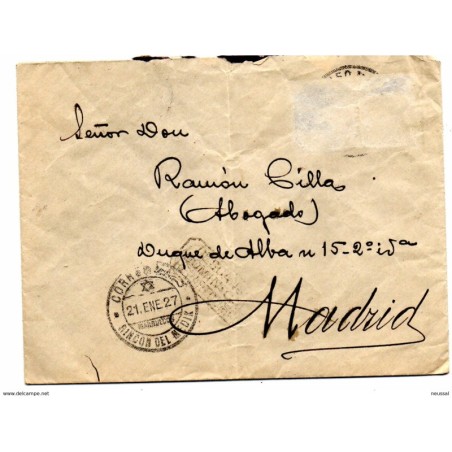 Señor Don
Ramón Cilla
(Abogado)
Duque de Alba n 15-2º
Madrid
CORREOS
21.ENE.27
MARRUECOS
RINCON DEL MEDIK
www.delcampe.net
neussal